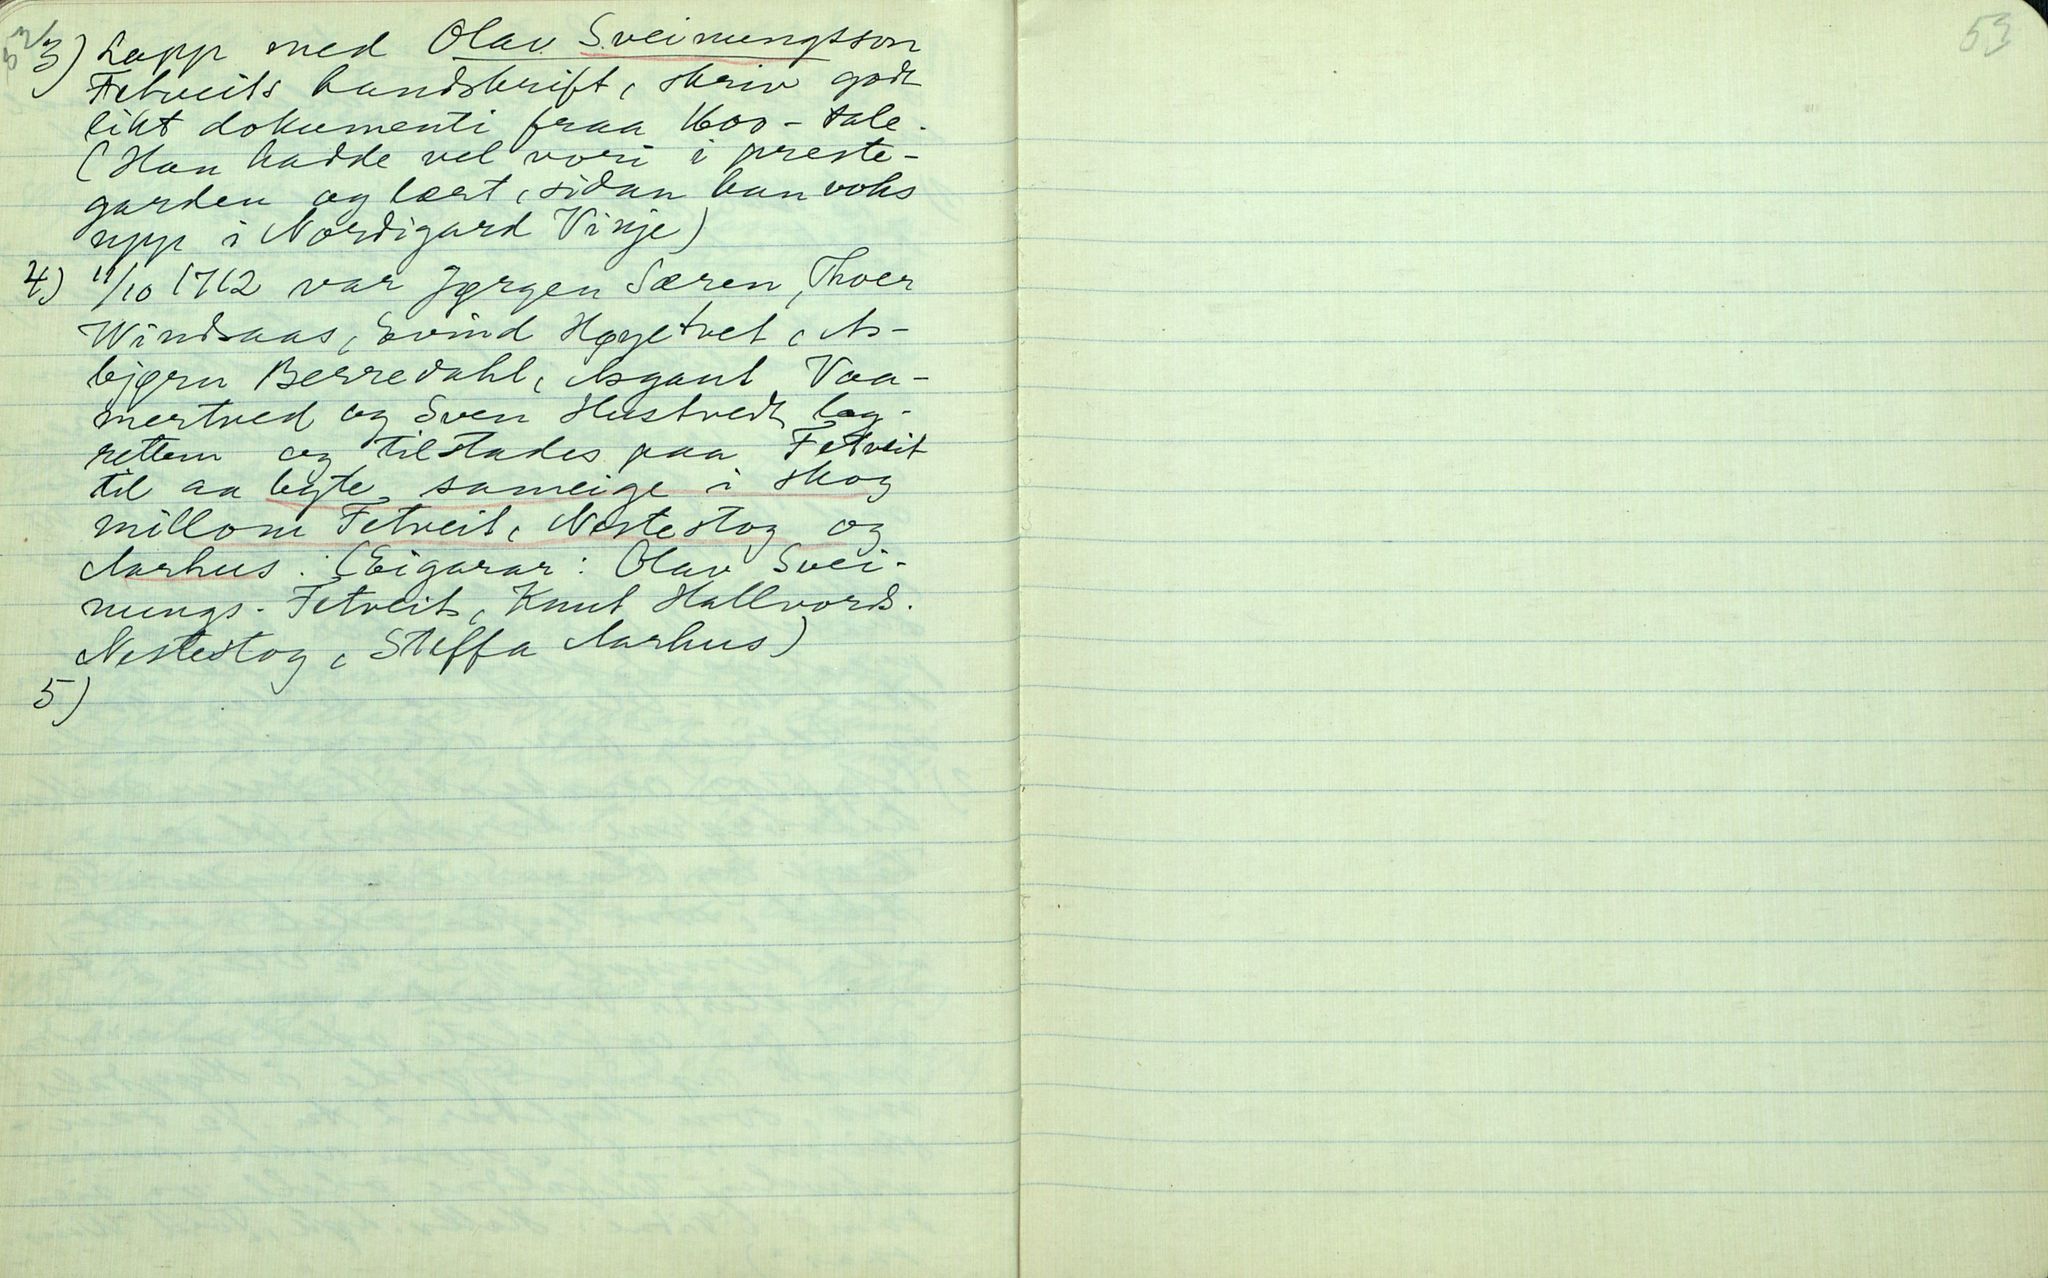 52
3) Lapp med Olav Sveinungsson
Fetveits handskrift, skriv godt
likt dokumenti fraa 1600-tale.
(Han hadde vel vori i preste-
garden og lært, sidan han voks
upp i Nordigard Vinje)
4) 11/10 1712 var Jørgen Særen, Thoer
Windsaas, Evind Høyetvet, As-
bjørn Berredahl, Asgaut Vaa-
mertved og Sven Hustvedt lag-
rettem og tilstades paa Fetveit
til aa byte sameige i skog
millom Fetveit, Nestestog og
Aarhus. (Eigarar: Olav Svei-
nungs. Fetveit, Knut Hallvords.
Nestestog, Steffa Aarhus)
5)
53